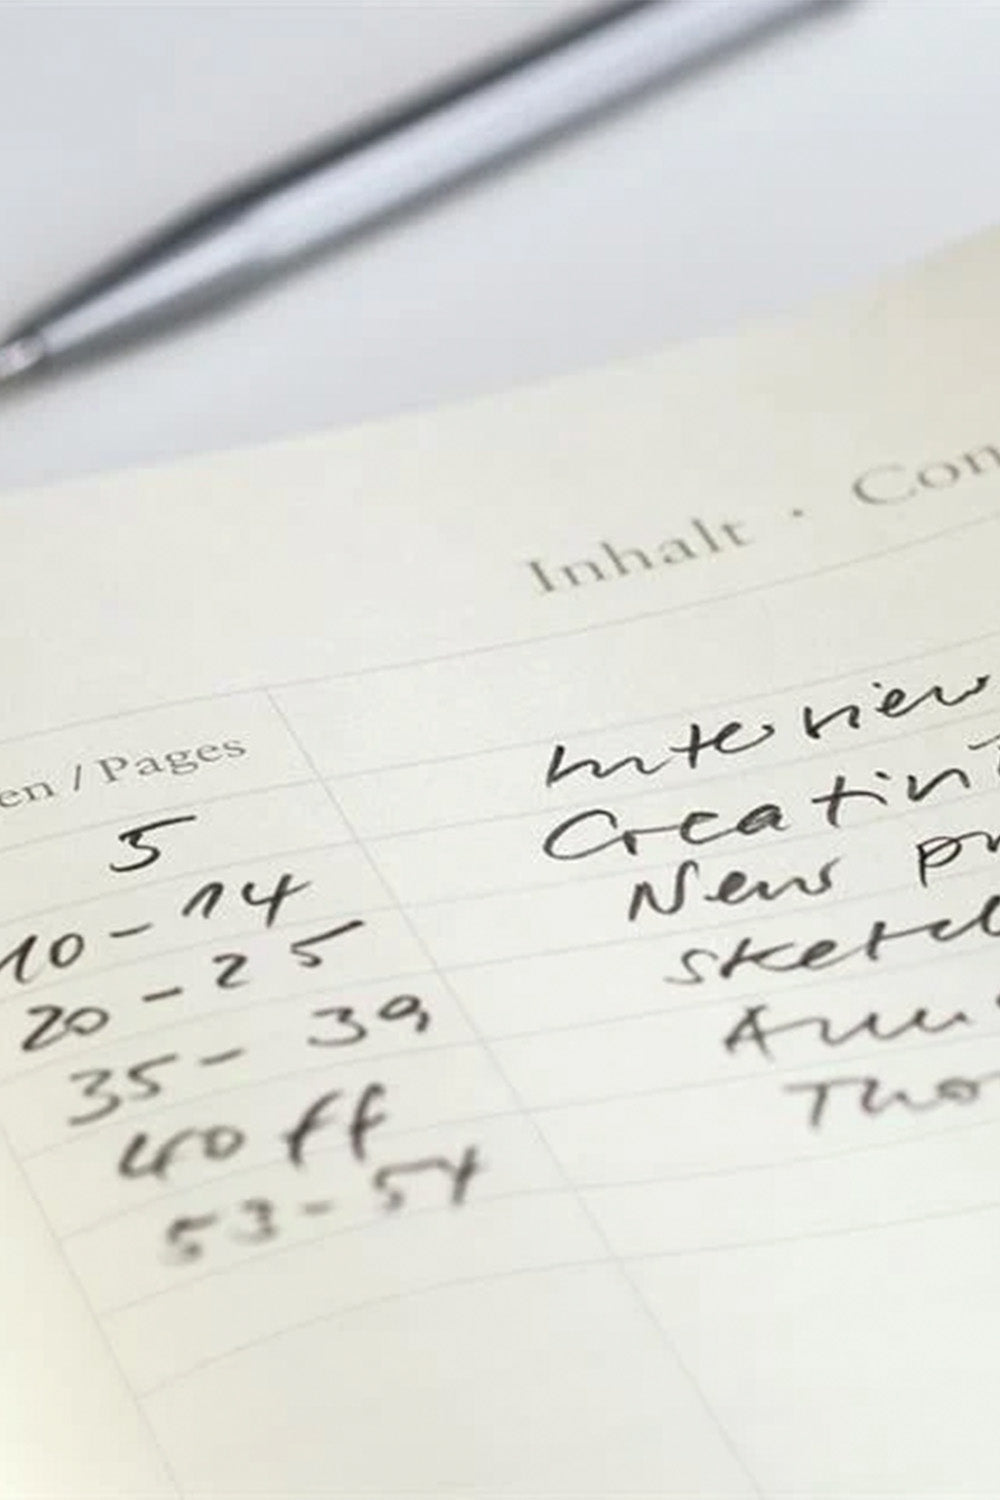 Inhalt · Con
en / Pages
5 Interview
10 - 14 Creativi
20 - 25 New pr
35 - 39 Sketch
40 ff
53 - 54 Tho